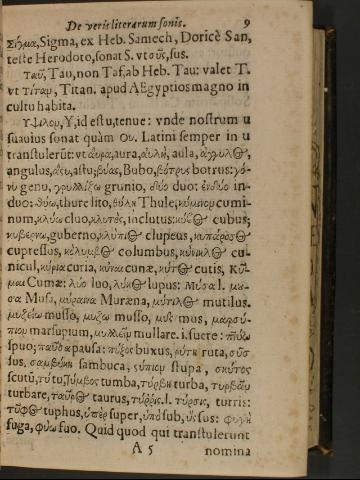 De veris literarum sonis. 9
Σίγμα, Sigma, ex Heb. Samech, Doricè San,
teste Herodoto, sonat S. vt σῦς, sus.
Ταῦ, Tau, non Taf, ab Heb. Tau: valet T.
vt Τίταν, Titan. apud AEgyptios magno in
cultu habita.
Υψιλον, Y, id est u, tenue: vnde nostrum u
suauius sonat quàm Ου. Latini semper in u
transtulerũt: vt αύρα, aura, αυλη, aula,
angulus, άςυ, astu; βύας, Bubo, βότρυς botrus: γό-
νυ genu, γρυλλίζω grunio, δύο duo: ἐνδύο in-
duo: θύω, thure lito, θύλη Thule; κύμινον cumi-
num, κλύω cluo, κλυτὸς, inclutus: κύβος cubus;
κυβερνω, guberno, clupeus, κυπάρισσος
cupressus, κόλυμβος columbus, κύνικλος cu-
nicul, κύρια curia, κύναι cunæ, κύτος cutis, Κῦ-
μαι Cumæ: λύω luo, λύκος lupus: Μῦσα l. μω-
σα Musa, μύραινα Muræna, μύτιλος mutilus.
musso, μύζω musso, μῦς mus, μαρσύ-
πιον marsupium, mullare. i. suere: πτύω
spuo; παῦσα pausa: πύξος buxus, ρυτη ruta, σῦς
sus, σαμβύκη sambuca, stupa, σκύτος
scutũ, τύ tu, τύμβος tumba, τύρβη turba, τυρβάζω
turbare, ταῦρος taurus, τύρρις. l. τύρσις, turris:
τῦφος tuphus, ὑπὲρ super, ὑπὸ sub, ὗς sus: φυγὴ
fuga, φύω fuo. Quid quod qui transtulerunt
A 5 nomina